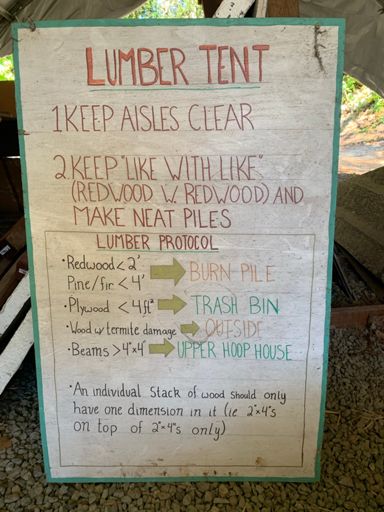 LUMBER TENT
1 KEEP AISLES CLEAR
2 KEEP "LIKE WITH LIKE"
(REDWOOD W. REDWOOD) AND
MAKE NEAT PILES
LUMBER PROTOCOL
• Redwood < 2' → BURN PILE
Pine/fir < 4'
• Plywood < 4ft² → TRASH BIN
• Wood w/ termite damage → OUTSIDE
• Beams > 4"x4" → UPPER HOOP HOUSE
• An individual stack of wood should only
have one dimension in it (ie 2"x4"s
on top of 2"x4"s only)